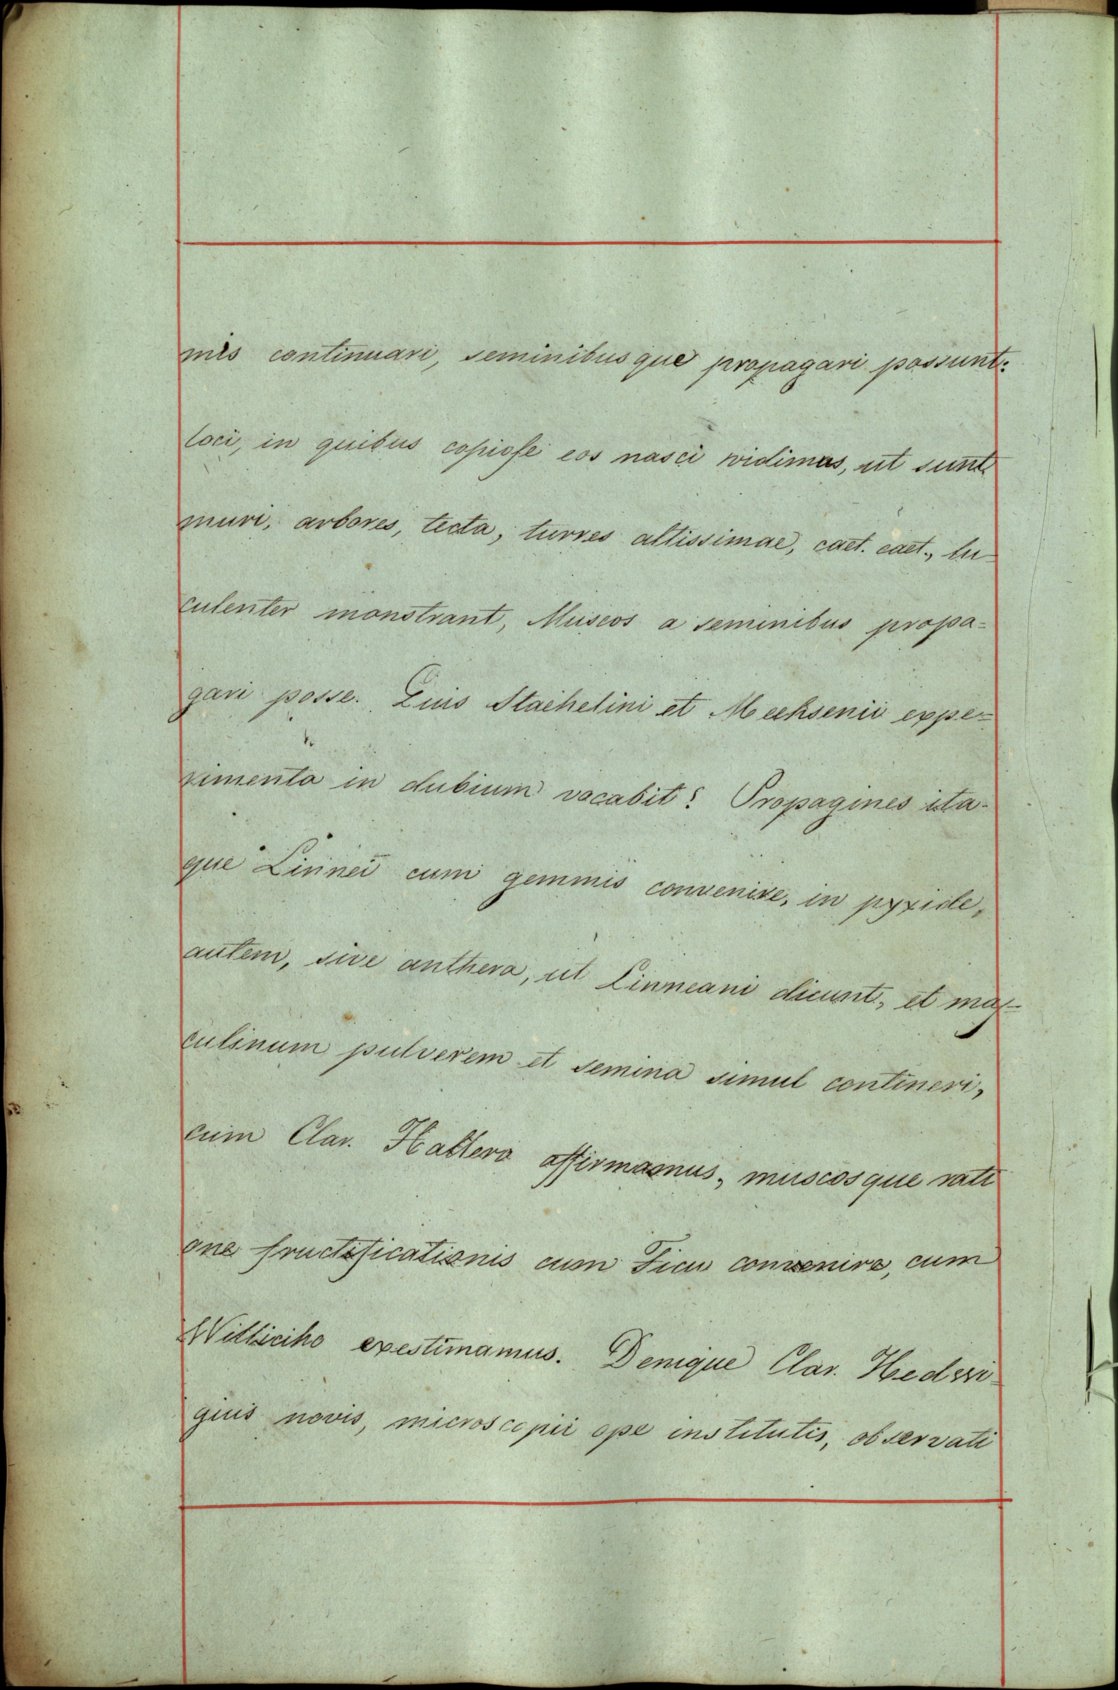 mis continuari, seminibusque propagari possunt.
loci, in quibus copiose eos nasci vidimus, ut sunt
muri, arbores, tecta, turres altissimae, caet. caet., lu-
culenter monstrant, Muscos a seminibus propa-
gari posse. Quis Staehelini et Meeksenii expe-
rimenta in dubium vocabit? Propagines ita-
que Linnei cum gemmis convenire, in pyxide,
autem, sive anthera, ut Linneani dicunt, et mas-
culinum pulverem et semina simul contineri,
cum Clar. Hallero affirmamus, muscosque rati
one fructificationis cum Ficu convenire, cum
exestimamus. Denique Clar. Hedwi
gius novis, microscopii ope institutis, observati